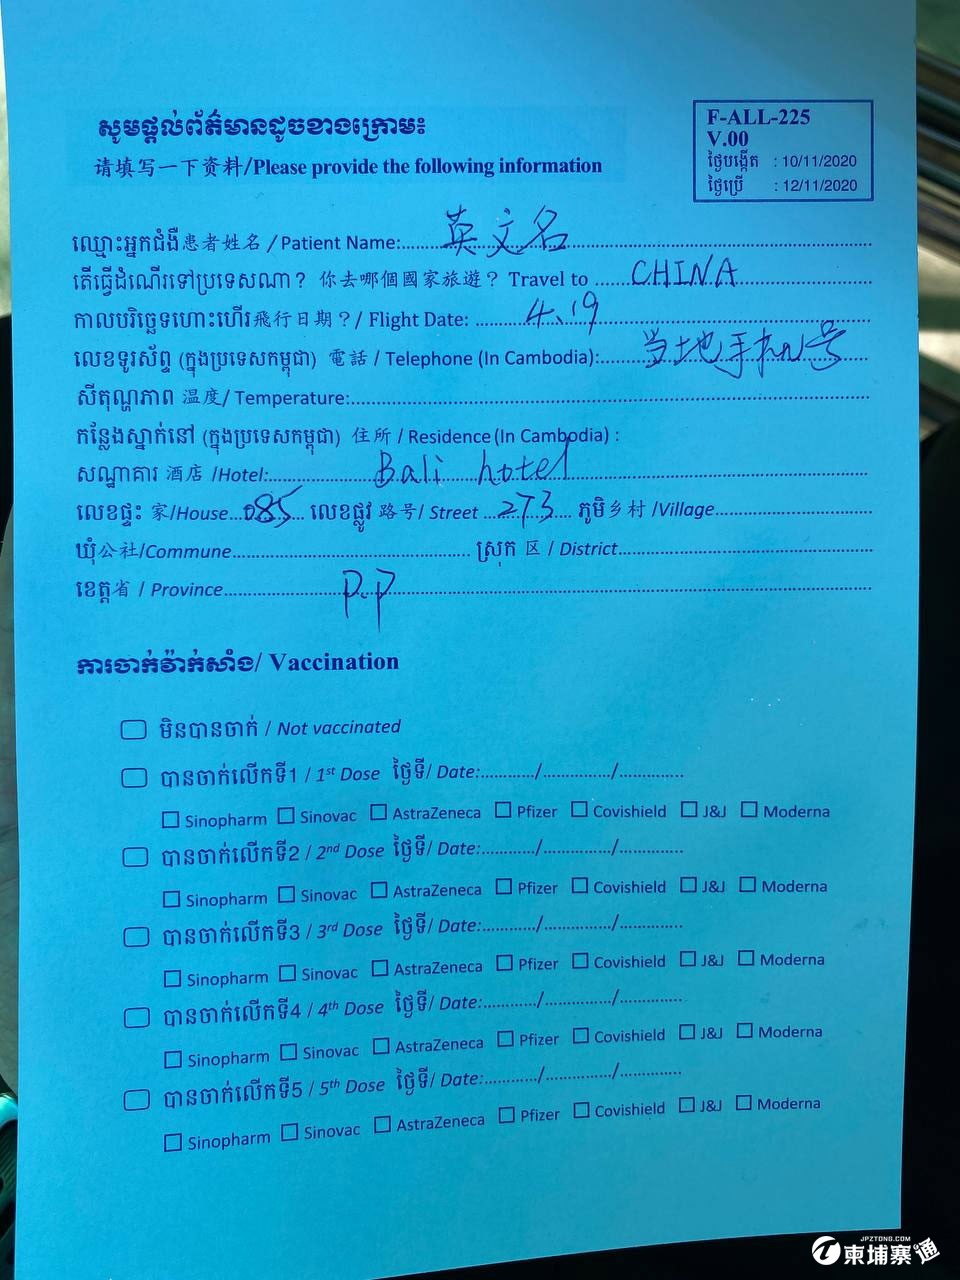 សូមផ្តល់ព័ត៌មានដូចខាងក្រោម៖
请填写一下资料/Please provide the following information
F-ALL-225
V.00
ថ្ងៃបង្កើត : 10/11/2020
ថ្ងៃប្រើ : 12/11/2020
ឈ្មោះអ្នកជំងឺ患者姓名 / Patient Name:...英文名...
តើធ្វើដំណើរទៅប្រទេសណា? 你去哪個國家旅遊? Travel to ...CHINA...
កាលបរិច្ឆេទហោះហើរ飛行日期?/ Flight Date: ...4.19...
លេខទូរស័ព្ទ (ក្នុងប្រទេសកម្ពុជា) 電話 / Telephone (In Cambodia):...当地手机号
សីតុណ្ហភាព 温度/ Temperature:...
កន្លែងស្នាក់នៅ (ក្នុងប្រទេសកម្ពុជា) 住所 / Residence (In Cambodia) :
សណ្ឋាគារ 酒店 /Hotel:...Bali hotel...
លេខផ្ទះ 家/House...085... លេខផ្លូវ 路号/ Street ...273... ភូមិ乡村 /Village...
ឃុំ公社/Commune... ស្រុក 区 / District...
ខេត្ត省 / Province...P.P...
ការចាក់វ៉ាក់សាំង/ Vaccination
មិនបានចាក់ / Not vaccinated
បានចាក់លើកទី1 / 1st Dose ថ្ងៃទី/ Date:.../.../...
Sinopharm Sinovac AstraZeneca Pfizer Covishield J&J Moderna
បានចាក់លើកទី2 / 2nd Dose ថ្ងៃទី/ Date:.../.../...
Sinopharm Sinovac AstraZeneca Pfizer Covishield J&J Moderna
បានចាក់លើកទី3 / 3rd Dose ថ្ងៃទី/ Date:.../.../...
Sinopharm Sinovac AstraZeneca Pfizer Covishield J&J Moderna
បានចាក់លើកទី4 / 4th Dose ថ្ងៃទី/ Date:.../.../...
Sinopharm Sinovac AstraZeneca Pfizer Covishield J&J Moderna
បានចាក់លើកទី5 / 5th Dose ថ្ងៃទី/ Date:.../.../...
Sinopharm Sinovac AstraZeneca Pfizer Covishield J&J Moderna
JPZTONG.COM
柬埔寨通